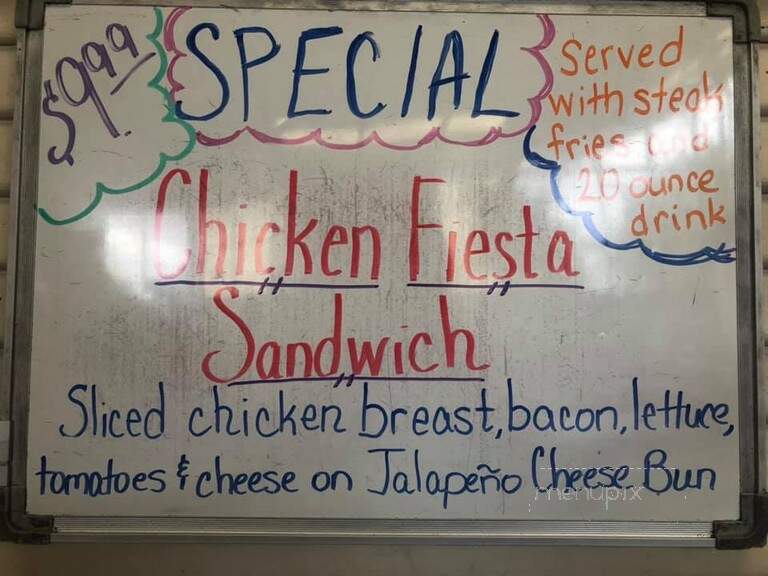 $9.99
SPECIAL
Served
with steak
fries and
20 ounce
drink
Chicken Fiesta
Sandwich
Sliced chicken breast, bacon, lettuce,
tomatoes & cheese on Jalapeño Cheese Bun
menupix